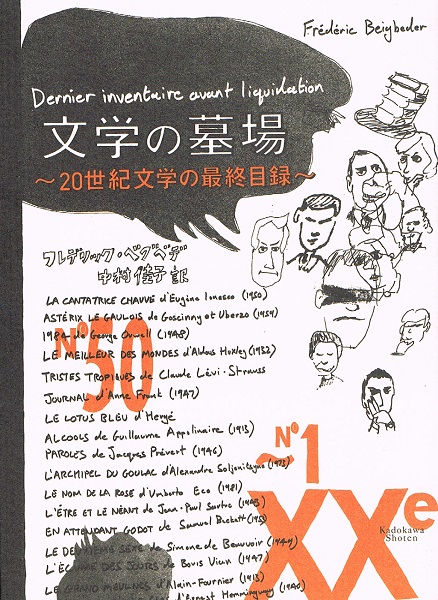 Frédéric Beigbeder
Dernier inventaire avant liquidation
文学の墓場
~20世紀文学の最終目録~
フレデリック・ベグベデ
中村佳子 訳
LA CANTATRICE CHAUVE d'Eugène Ionesco (1950)
ASTÉRIX LE GAULOIS de Goscinny et Uderzo (1959)
1984 de George Orwell (1948)
LE MEILLEUR DES MONDES d'Aldous Huxley (1932)
TRISTES TROPIQUES de Claude Lévi-Strauss
JOURNAL d'Anne Frank (1947)
LE LOTUS BLEU d'Hergé
ALCOOLS de Guillaume Appolinaire (1913)
PAROLES de Jacques Prévert (1946)
L'ARCHIPEL DU GOULAG d'Alexandre Soljenitsyne (1973)
LE NOM DE LA ROSE d'Umberto Eco (1981)
L'ÊTRE ET LE NÉANT de Jean-Paul Sartre (1943)
EN ATTENDANT GODOT de Samuel Beckett (1953)
LE DEUXIÈME SEXE de Simone de Beauvoir (1949)
L'ÉCUME DES JOURS de Boris Vian (1947)
LE GRAND MEAULNES d'Alain-Fournier (1913)
d'Ernest Hemingway (1940)
N°50
~N°1
XXe
Kadokawa
Shoten